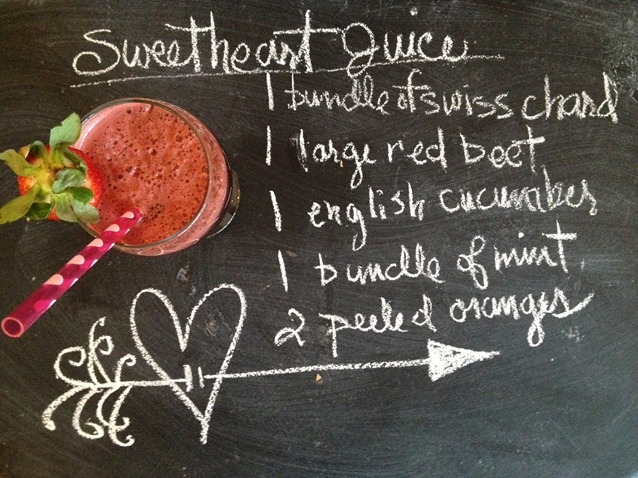 Sweetheart Juice
1 bundle of swiss chard
1 large red beet
1 english cucumber
1 bundle of mint
2 peeled oranges